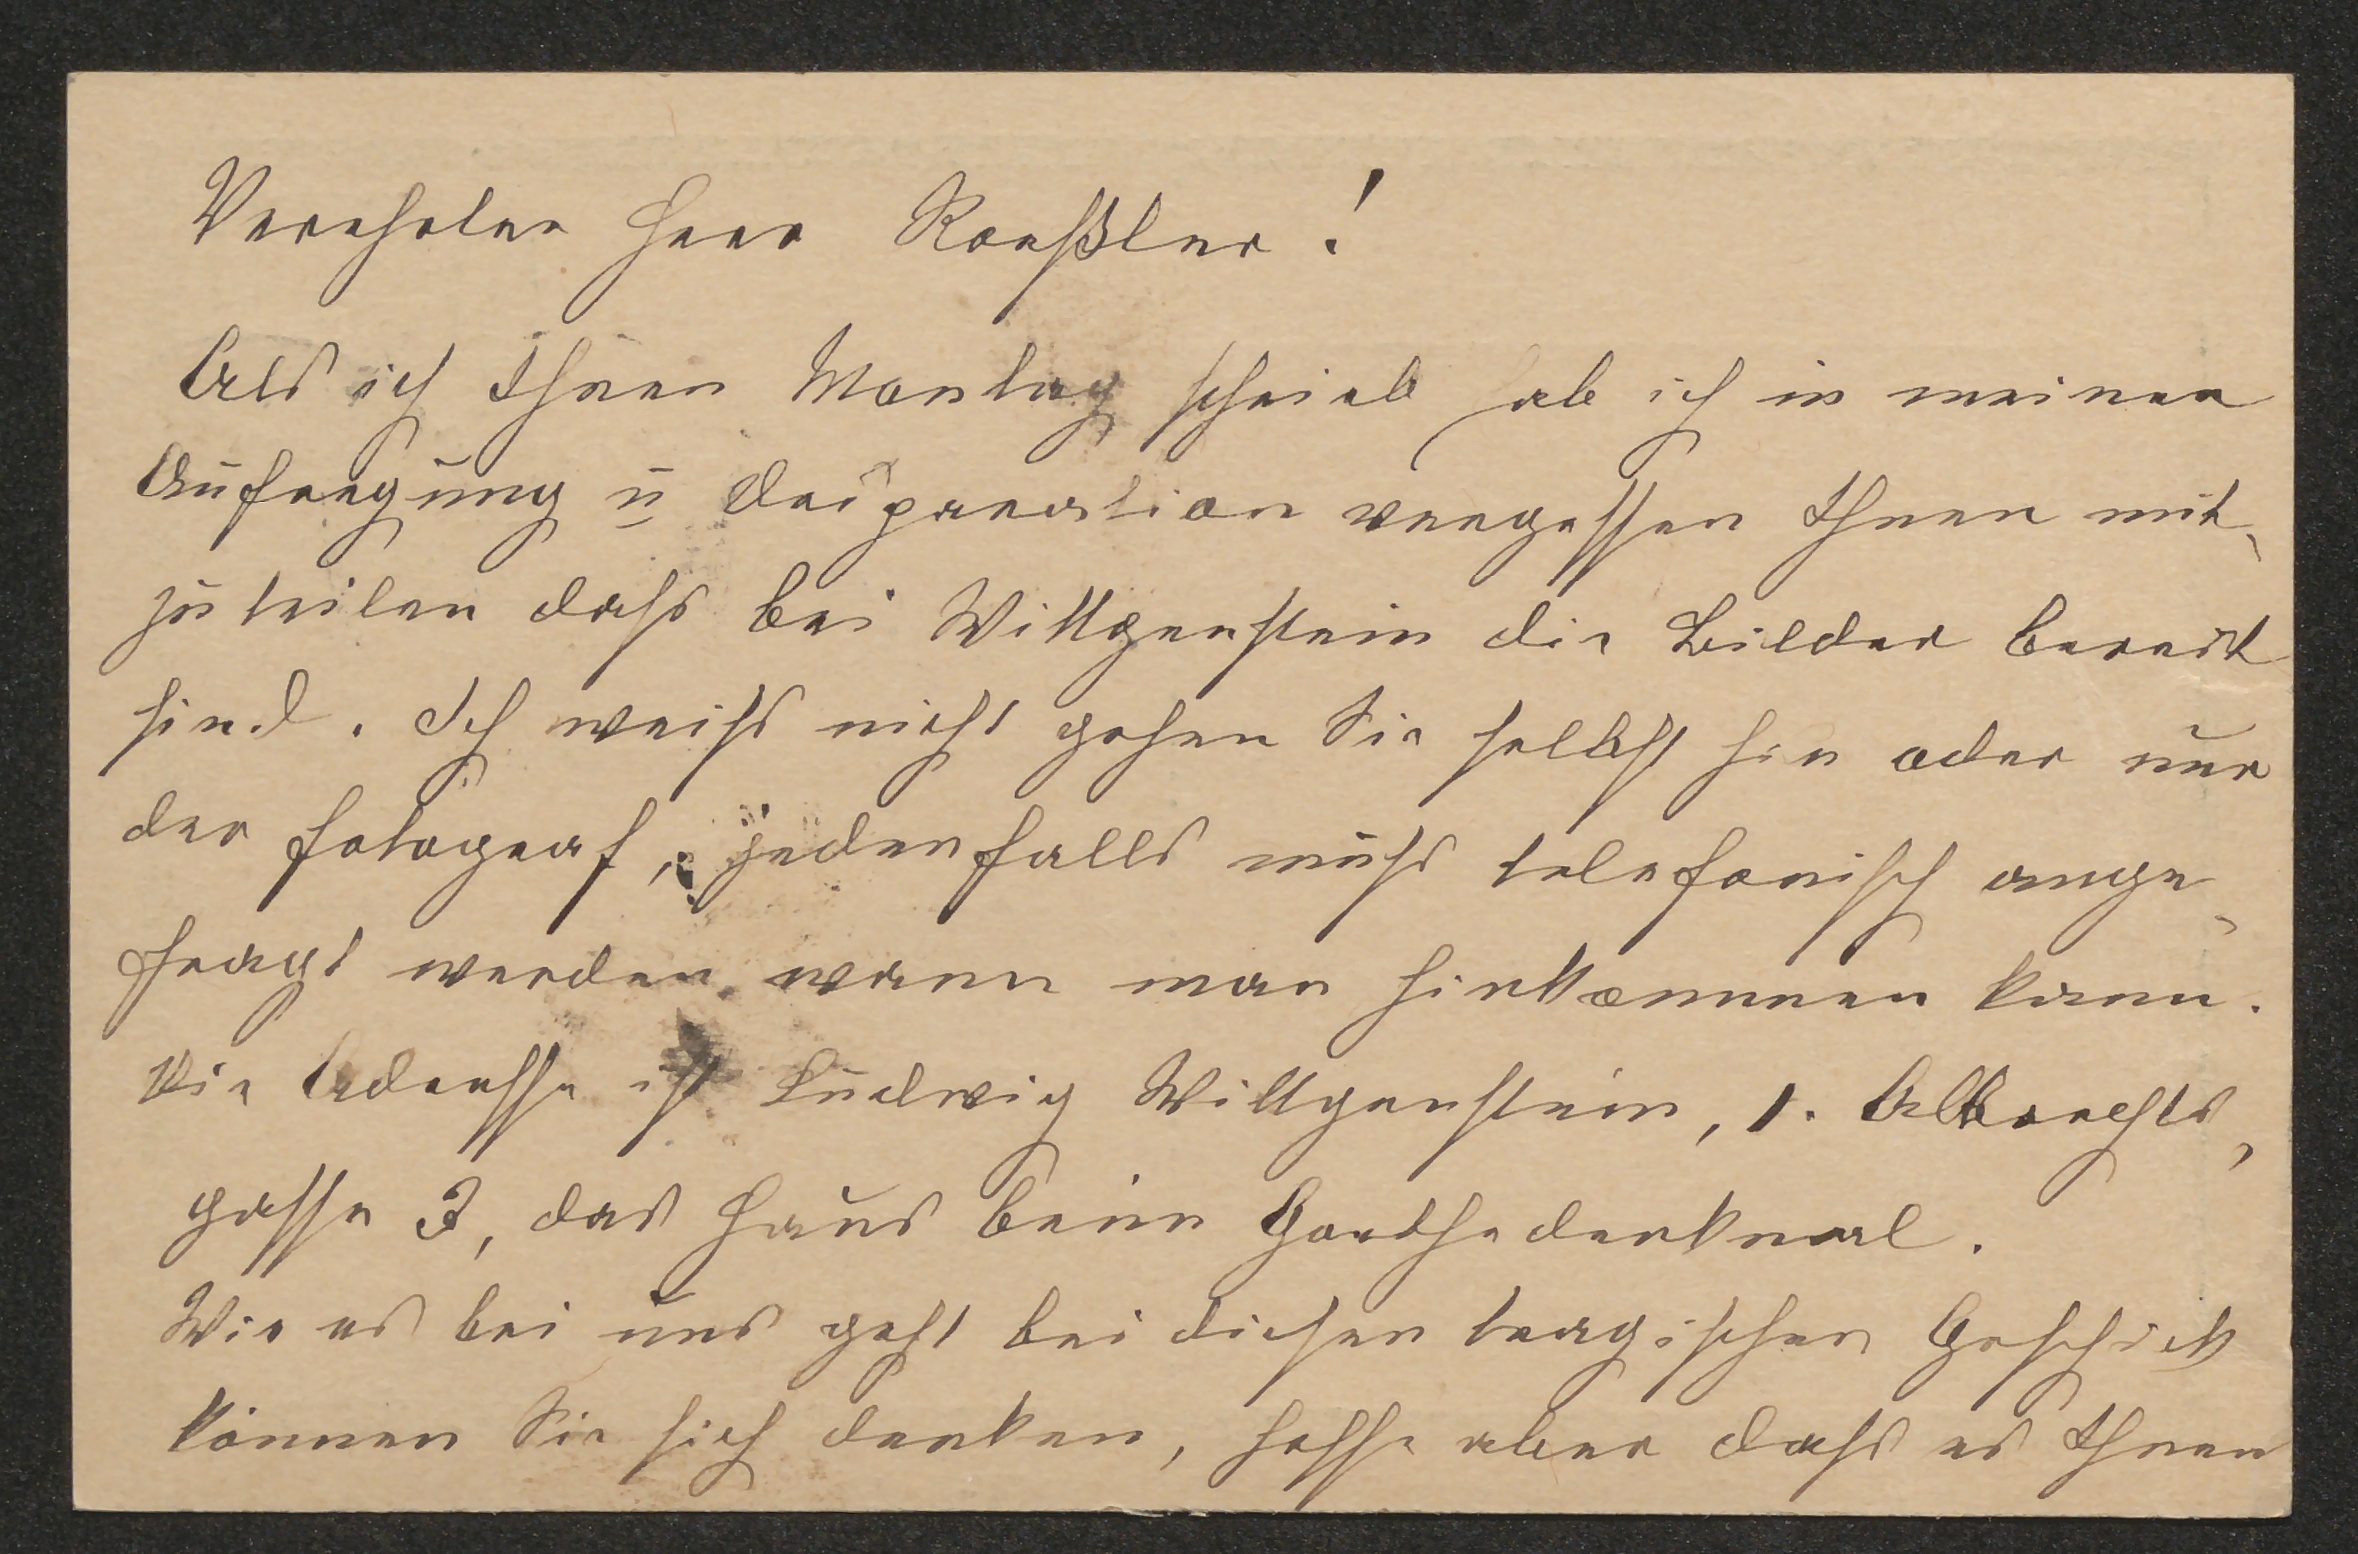 Verehrter Herr Roeßler!
Als ich Ihnen Montag schrieb hab ich in meiner
Aufregung u Desparation vergessen Ihnen mit-
zuteilen dass bei Wittgenstein die Bilder bereit
sind. Ich weiss nicht gehen Sie selbst hin oder nur
der Fotograf, jedenfalls muss telefonisch ange-
fragt werden wann man hinkommen kann.
Die Adresse ist Ludwig Wittgenstein, 1. Albrechts-
gasse 3, das Haus beim Goethedenkmal.
Wie es bei uns geht bei diesen tragischen Geschick
können Sie sich denken, hoffe aber dass es Ihnen